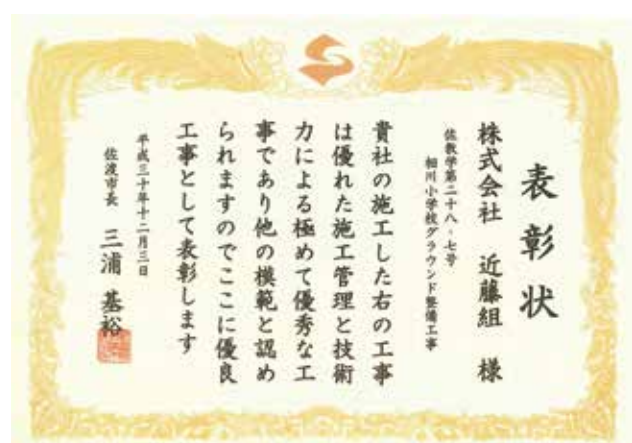 表彰状
株式会社 近藤組 様
佐教学第二十八・七号
相川小学校グラウンド整備工事
貴社の施工した右の工事
は優れた施工管理と技術
力による極めて優秀な工
事であり他の模範と認め
られますのでここに優良
工事として表彰します
平成三十年十二月三日
佐渡市長 三浦 基裕